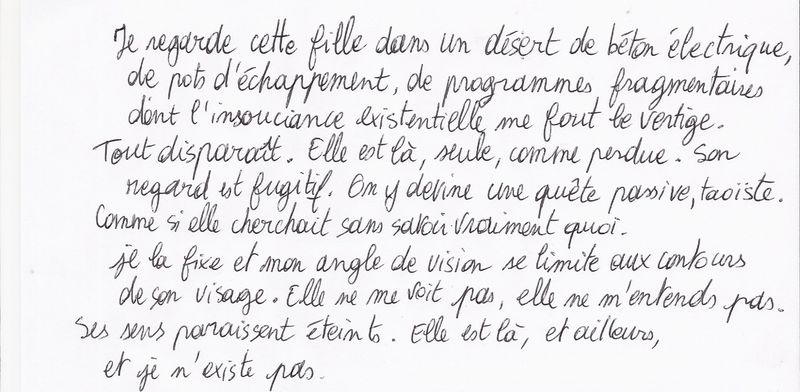 Je regarde cette fille dans un désert de béton électrique,
de pots d'échappement, de programmes fragmentaires
dont l'insouciance existentielle me fout le vertige.
Tout disparaît. Elle est là, seule, comme perdue. Son
regard est fugitif. On y devine une quête passive, taoïste.
Comme si elle cherchait sans savoir vraiment quoi.
je la fixe et mon angle de vision se limite aux contours
de son visage. Elle ne me voit pas, elle ne m'entends pas.
Ses sens paraissent éteints. Elle est là, et ailleurs,
et je n'existe pas.